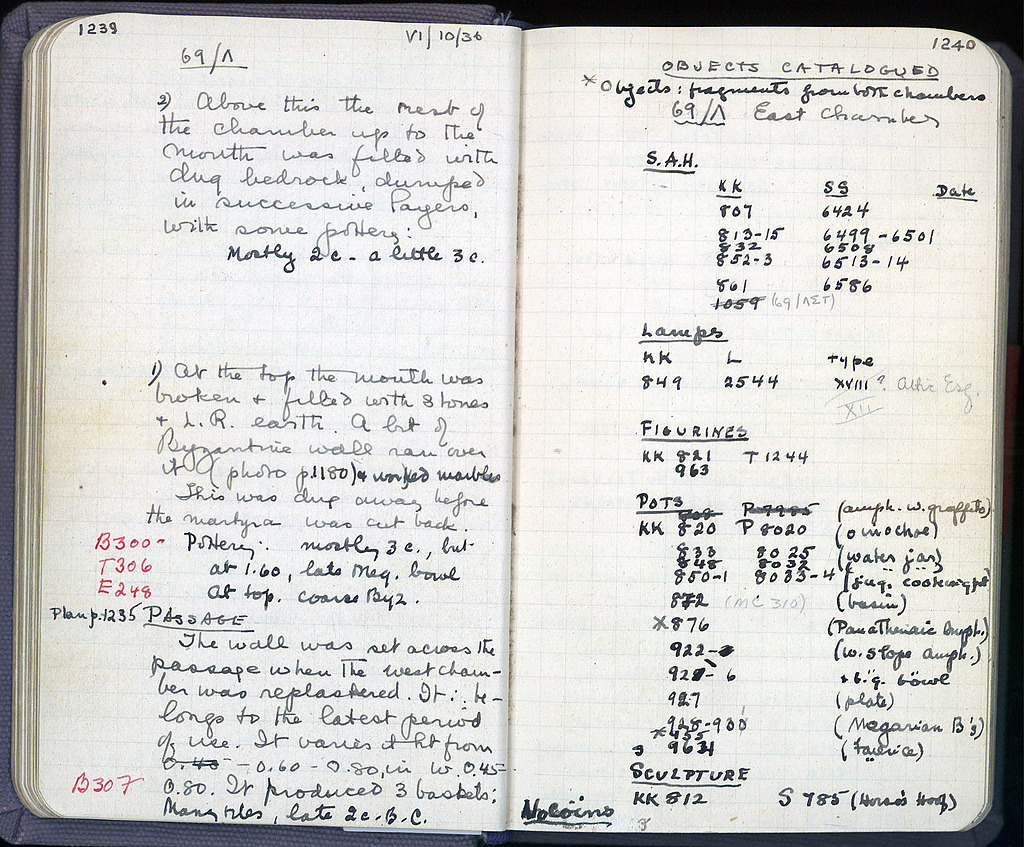 1239
VI/10/36
69/Λ
2) Above this the rest of
the chamber up to the
mouth was filled with
dug bedrock, dumped
in successive layers,
with some pottery:
Mostly 2c. - a little 3c.
1) At the top the mouth was
broken + filled with stones
+ L.R. earth. A bit of
Byzantine wall ran over
it (photo p.1180) + worked marbles
This was dug away before
the martyra was cut back.
B300 - Pottery: mostly 3c., but
T306 at 1.60, late Meg. bowl
E248 at top. coarse Byz.
Plan p.1235 PASSAGE
The wall was set across the
passage when the west cham-
ber was replastered. It be-
longs to the latest period
of use. It varies it ht from
0.45 - 0.60 - 0.80, in w. 0.45-
B307 0.80. It produced 3 baskets:
Many tiles, late 2c. B.C.
1240
OBJECTS CATALOGUED
* Objects: fragments from both chambers
69/Λ East Chamber
S.A.H.
KK SS Date
807 6424
813-15 6499-6501
832 6508
852-3 6513-14
861 6586
1059 (69/ΛΣΤ)
Lamps
KK L type
849 2544 XVIII? Attic Esq.
XII
FIGURINES
KK 821 T 1244
963
POTS (amph. w. graffito)
KK 820 P 8020 (oinochoe)
833 8025 (water jar)
848 8032
850-1 8033-4 (jug. cooking pt)
872 (MC 310) (basin)
*876 (Panathenaic Amph.)
922- (w. slope amph.)
6 + b.g. bowl
927 (plate)
928-930 (Megarian B's)
*935
963
SCULPTURE
KK 812 S 785 (Horse's Hoof)
No coins